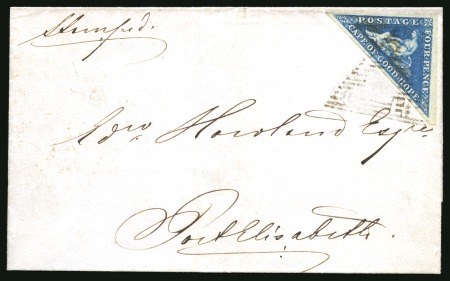 Stamped.
POSTAGE
FOUR PENCE
CAPE OF GOOD HOPE
Edw. Howland Esqre
Port Elizabeth.